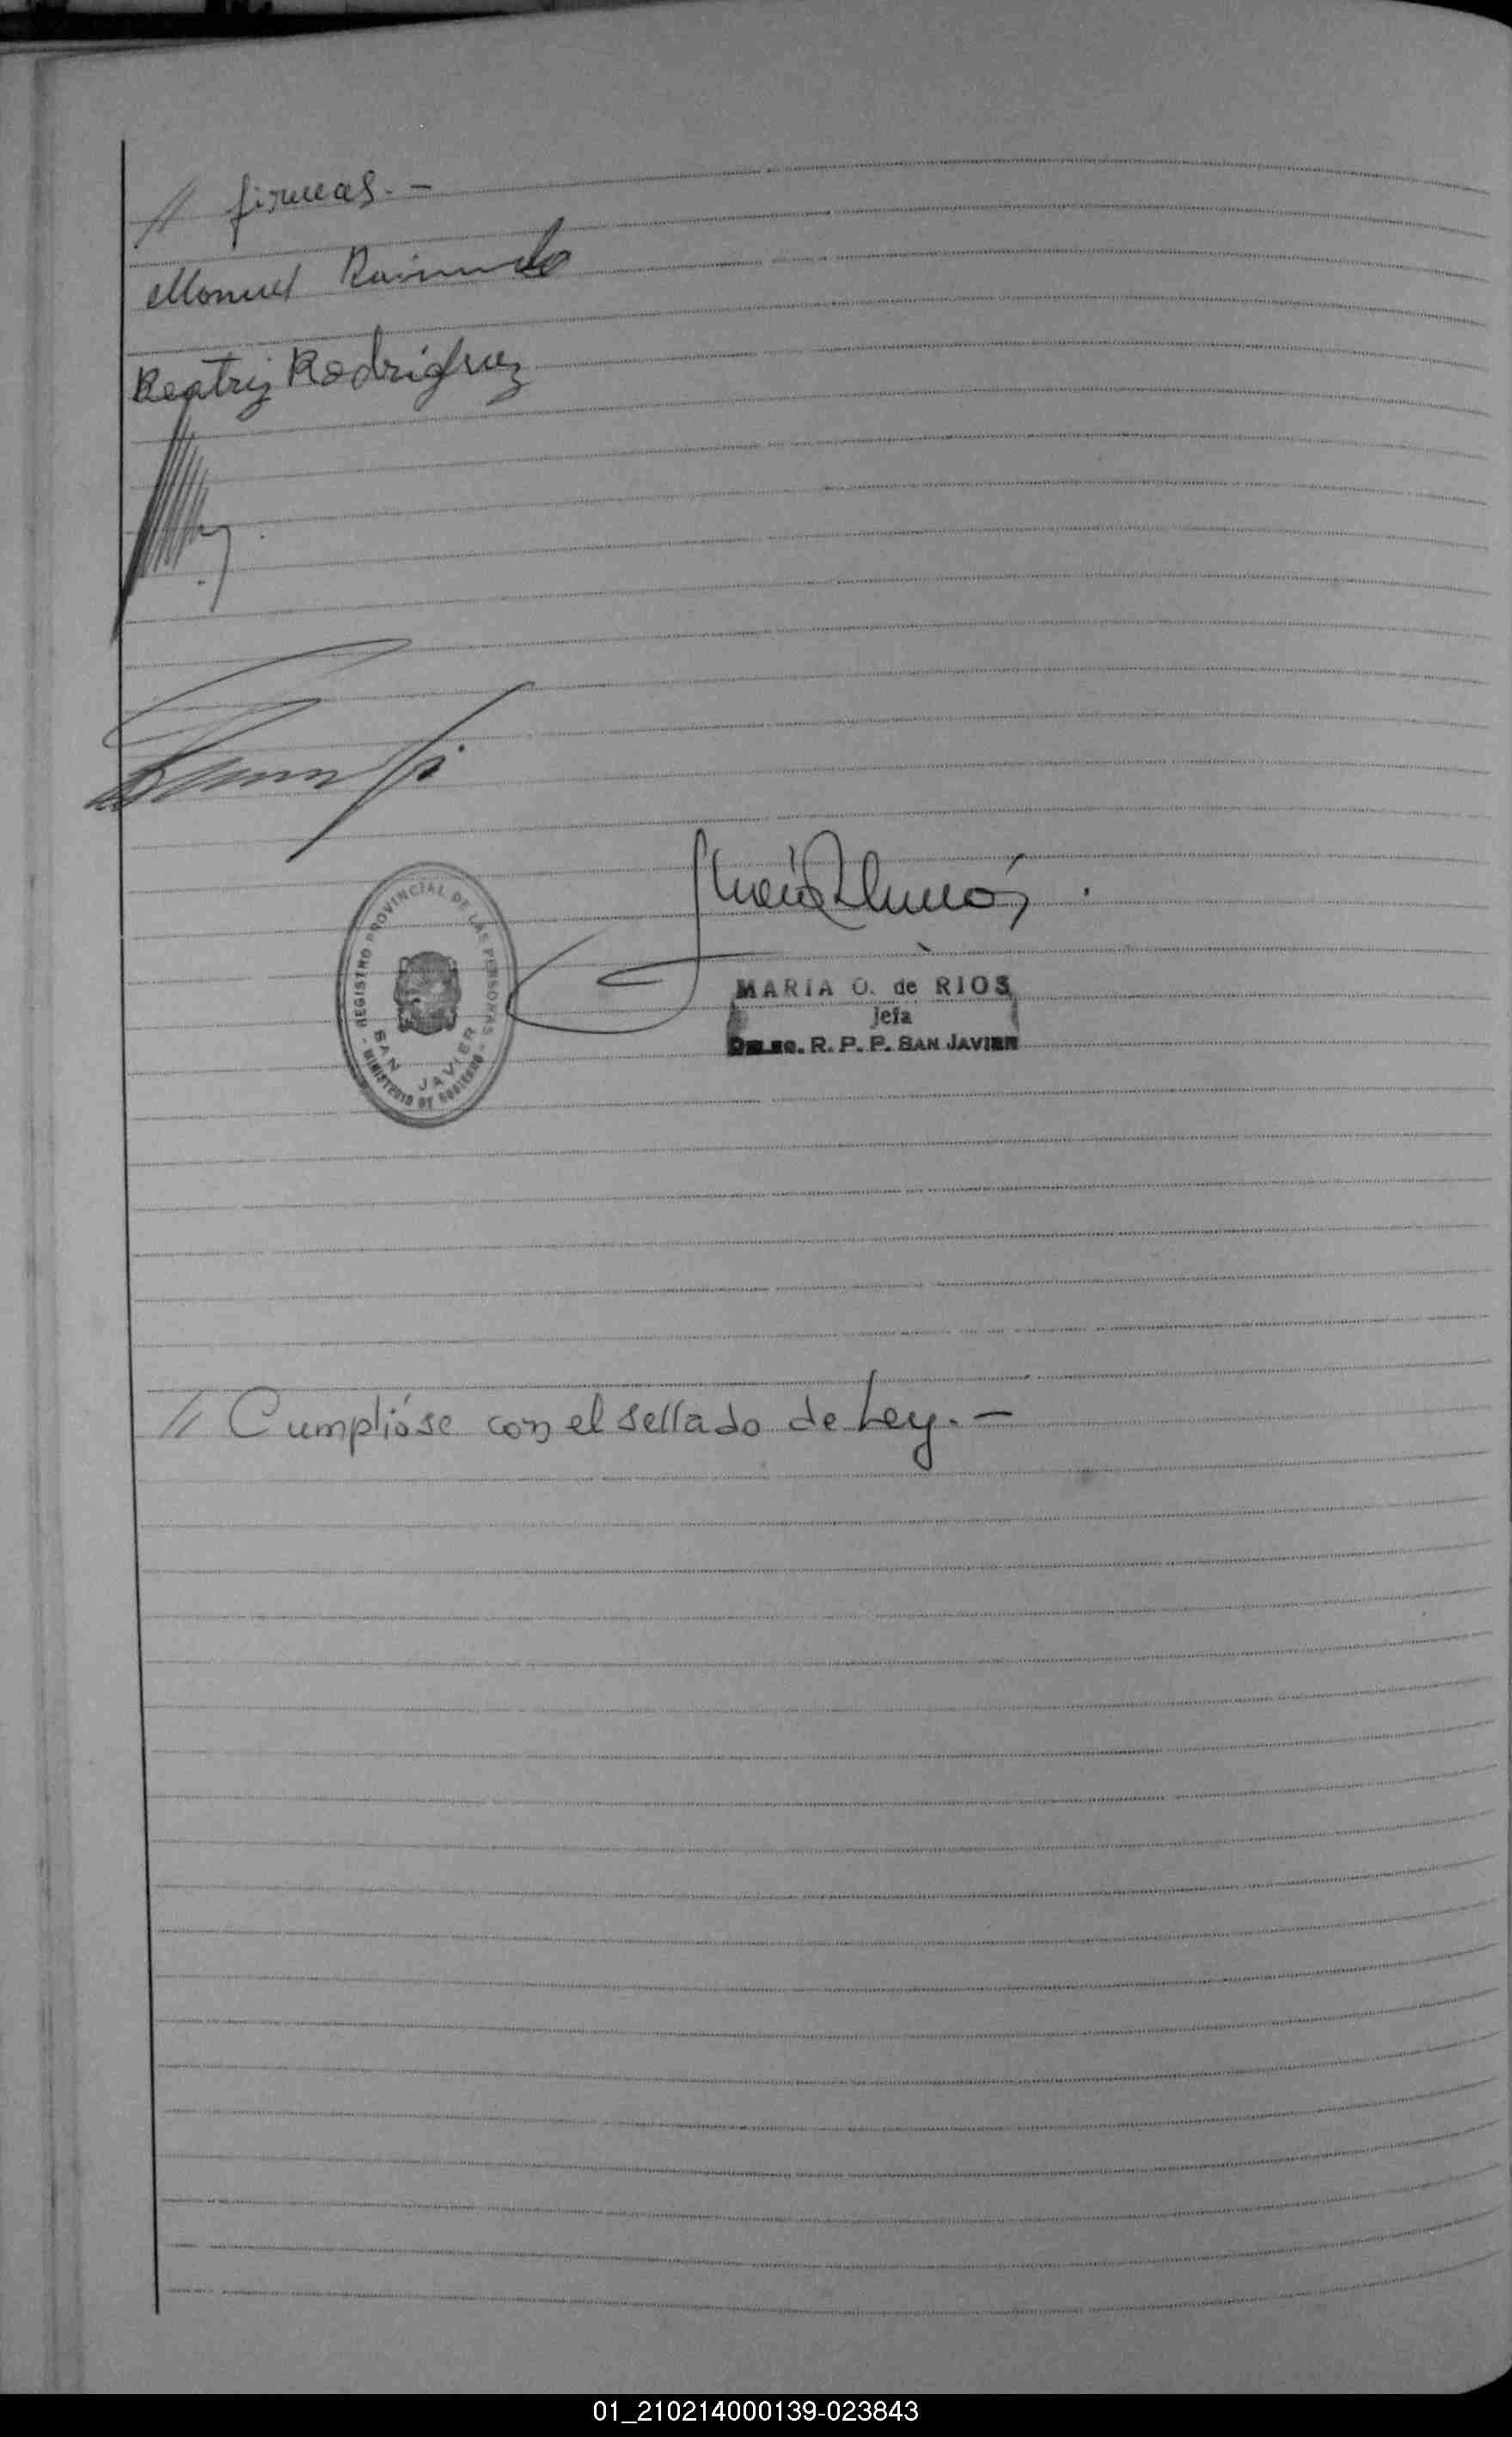 // firmas.-
Manuel Raimundo
Beatriz Rodriguez
REGISTRO PROVINCIAL DE LAS PERSONAS
SAN JAVIER
- MINISTERIO DE GOBIERNO -
MARIA O. de RIOS
Jefa
DELEG. R. P. P. SAN JAVIER
// Cumplióse con el sellado de Ley.-
01_210214000139-023843